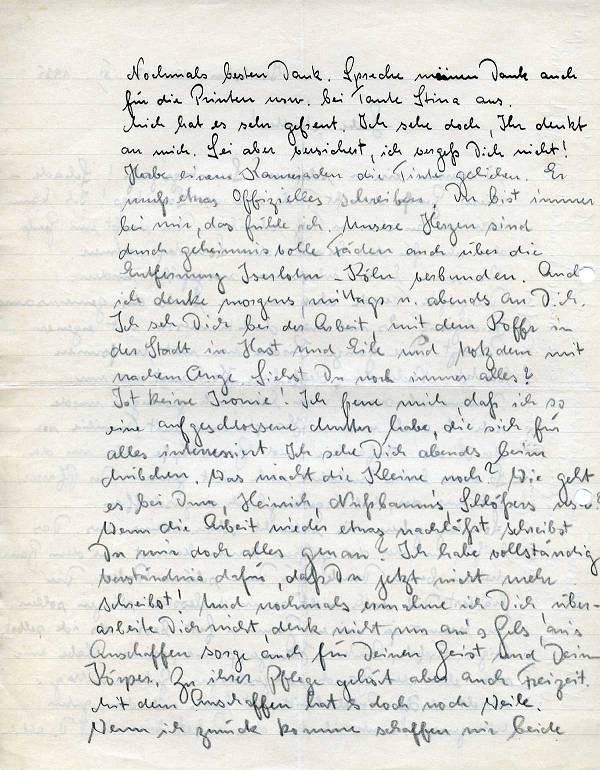 Nochmals besten Dank. Spreche meinen Dank auch
für die Printen usw. bei Tante Stina aus.
Mich hat es sehr gefreut. Ich sehe doch, Ihr denkt
an mich. Sei aber versichert, ich vergeß Dich nicht!
Habe einem Kameraden die Tinte geliehen. Er
muß etwas Offizielles schreiben. Du bist immer
bei mir, das fühle ich. Unsere Herzen sind
durch geheimnisvolle Fäden auch über die
Entfernung Iserlohn Köln verbunden. Auch
ich denke morgens, mittags u. abends an Dich.
Ich seh Dich bei der Arbeit, mit dem Koffer in
der Stadt in Hast und Eile und trotzdem mit
wachem Auge. Siehst Du noch immer alles?
Ist keine Ironie! Ich freue mich, daß ich so
eine aufgeschlossene Mutter habe, die sich für
alles interessiert. Ich sehe Dich abends beim
Was macht die Kleine noch? Wie geht
es bei Heinrich, Nußbaum's Schlößers usw.?
Wenn die Arbeit wieder etwas nachläßt schreibst
Du mir doch alles genau? Ich habe vollständig
Verständnis dafür, daß Du jetzt nicht mehr
schreibst! Und nochmals ermahne ich Dich über-
arbeite Dich nicht, denk nicht nur an's Geld, an's
Anschaffen sorge auch für Deinen Geist und Dein
Körper. Zu ihrer Pflege gehört aber auch Freizeit.
Mit dem Anschaffen hat es doch noch Weile.
Wenn ich zurück komme schaffen wir beide